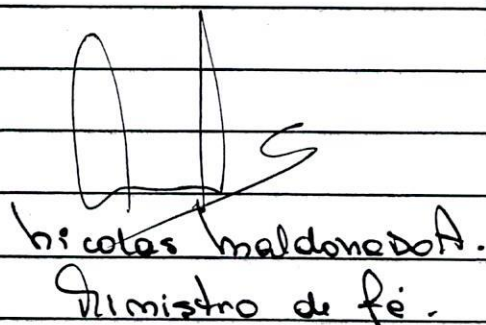 Nicolas Maldonado A.
Ministro de fé.